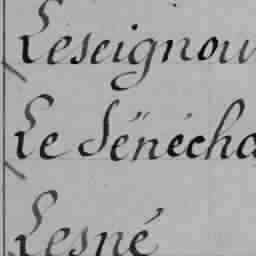 Leseignou
Le Sénécha
Lesné